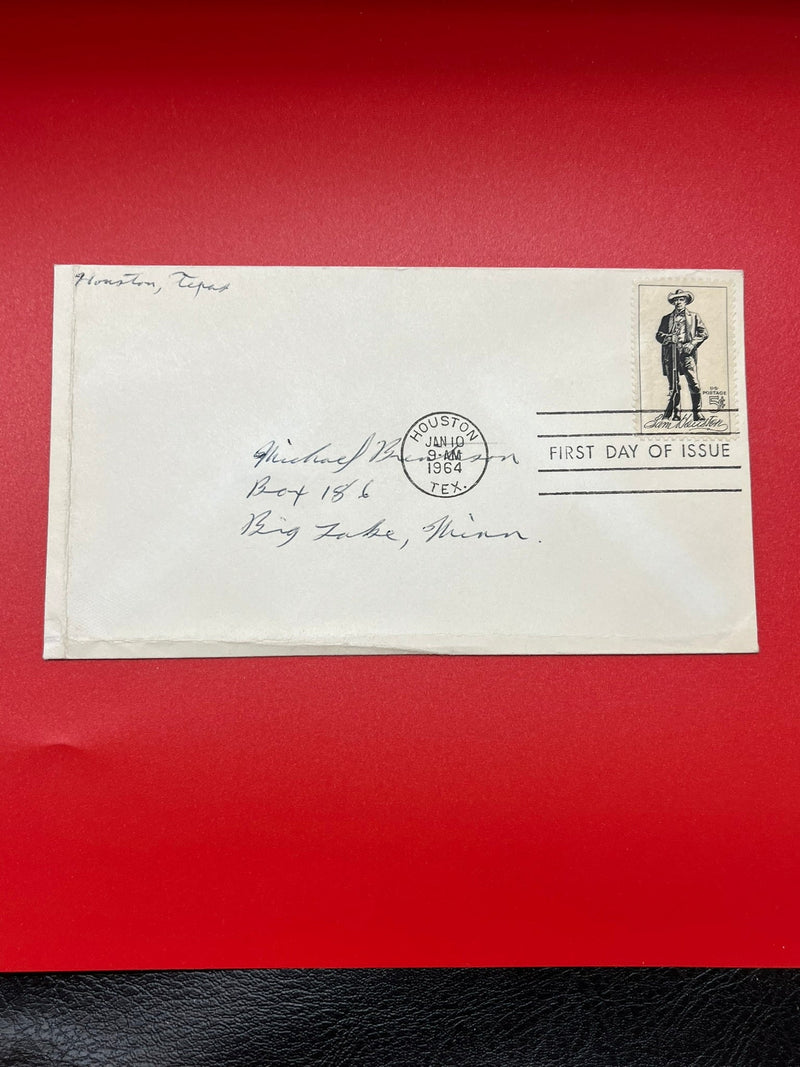 Houston, Texas
U.S.
POSTAGE
5¢
Sam Houston
HOUSTON
JAN 10
9-AM
1964
TEX.
FIRST DAY OF ISSUE
Michael
Box 186
Big Lake, Minn.